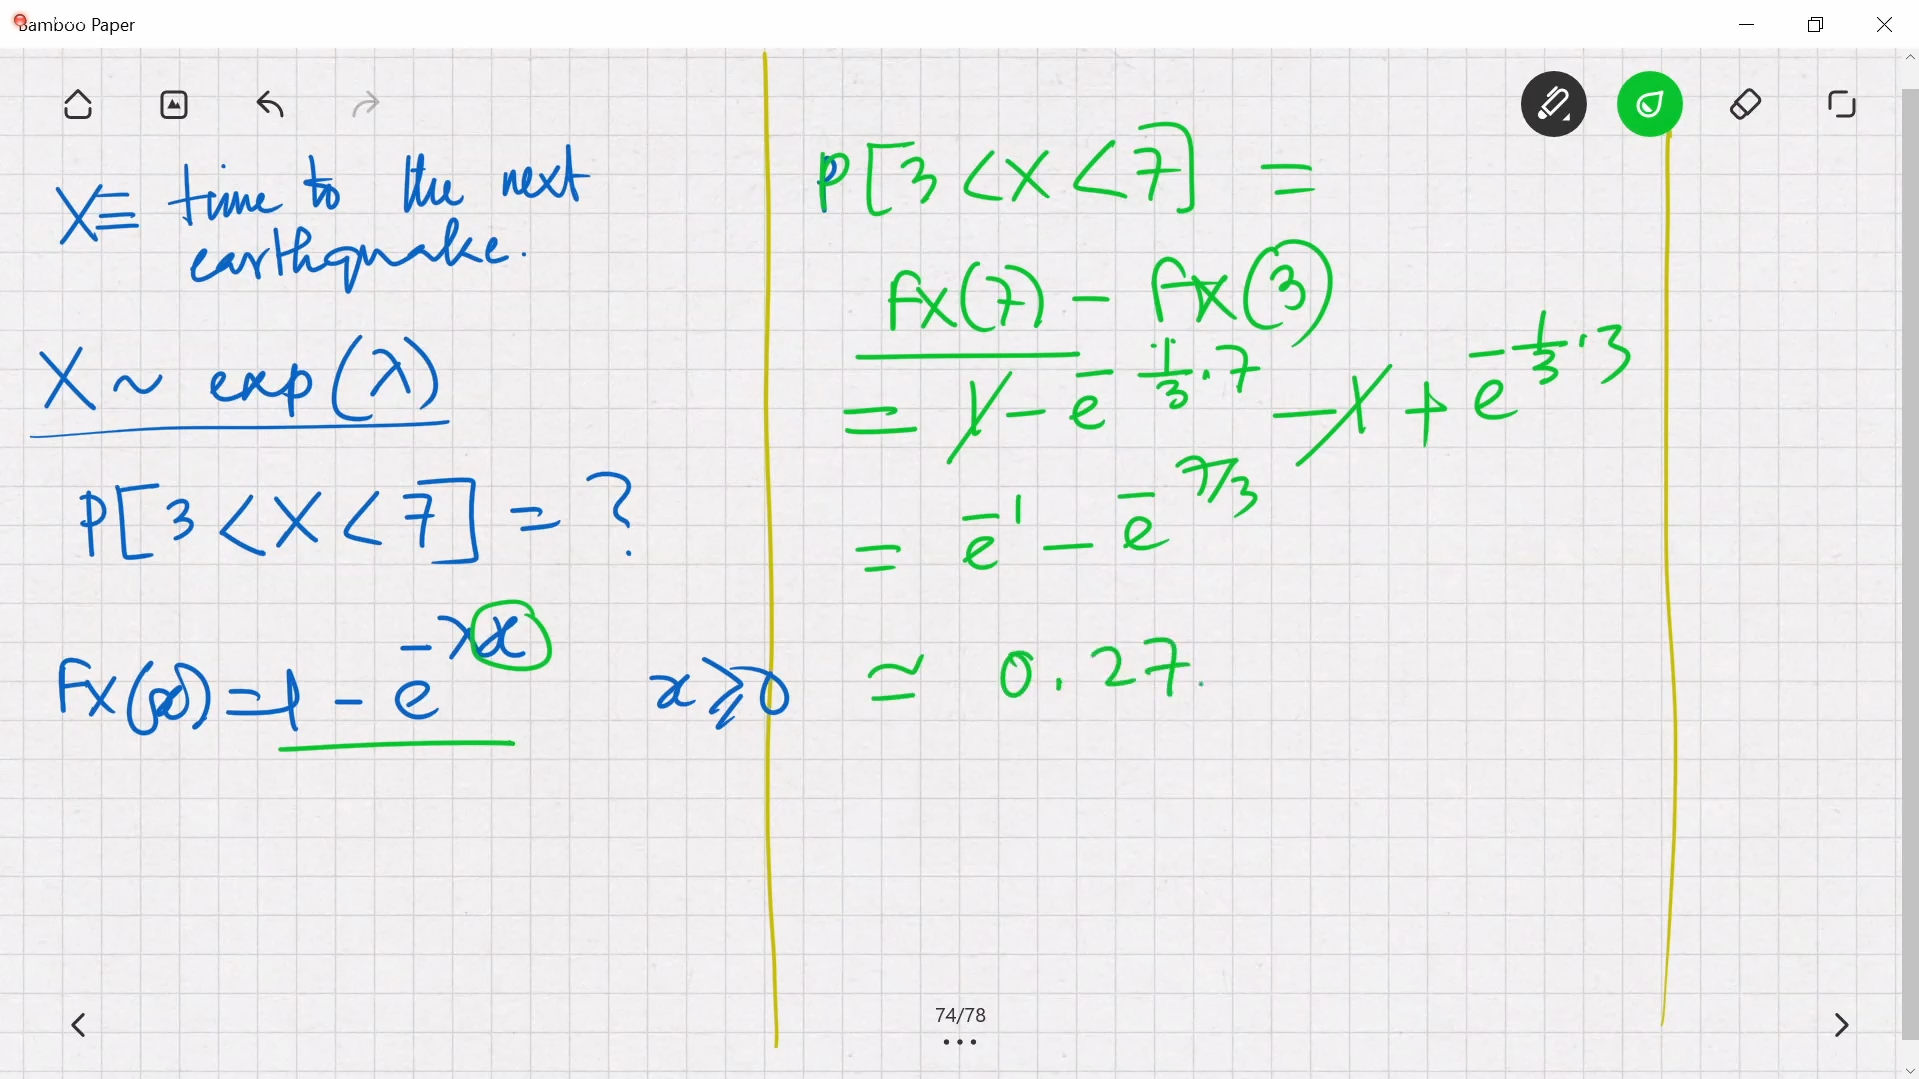 Bamboo Paper
X ≡ time to the next
earthquake.
X ~ exp(λ)
P[3 < X < 7] = ?
Fx(x) = 1 - e^{-λx} x ≥ 0
P[3 < X < 7] =
Fx(7) - Fx(3)
= 1 - e^{-1/3 · 7} - 1 + e^{-1/3 · 3}
= e^{-1} - e^{-7/3}
≃ 0.27.
74/78